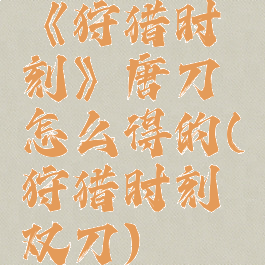 《狩猎时
刻》唐刀
怎么得的(
狩猎时刻
双刀)